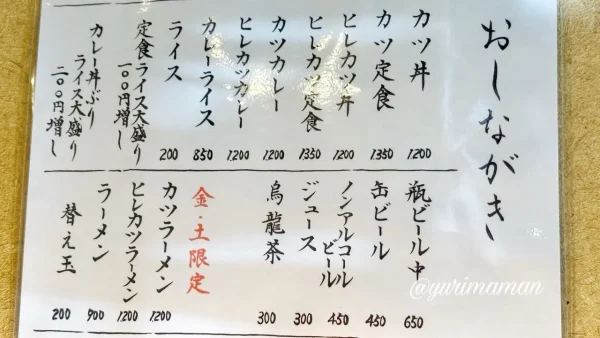 おしながき
カツ丼 1200
カツ定食 1350
ヒレカツ丼 1200
ヒレカツ定食 1350
カツカレー 1200
ヒレカツカレー 1200
カレーライス 850
ライス 200
定食ライス大盛り
一〇〇円増し
カレー丼ぶり
ライス大盛り
二〇〇円増し
瓶ビール中 650
缶ビール 450
ノンアルコール
ビール 450
ジュース 300
烏龍茶 300
金・土限定
カツラーメン 1200
ヒレカツラーメン 1200
ラーメン 900
替え玉 200
@yurimaman